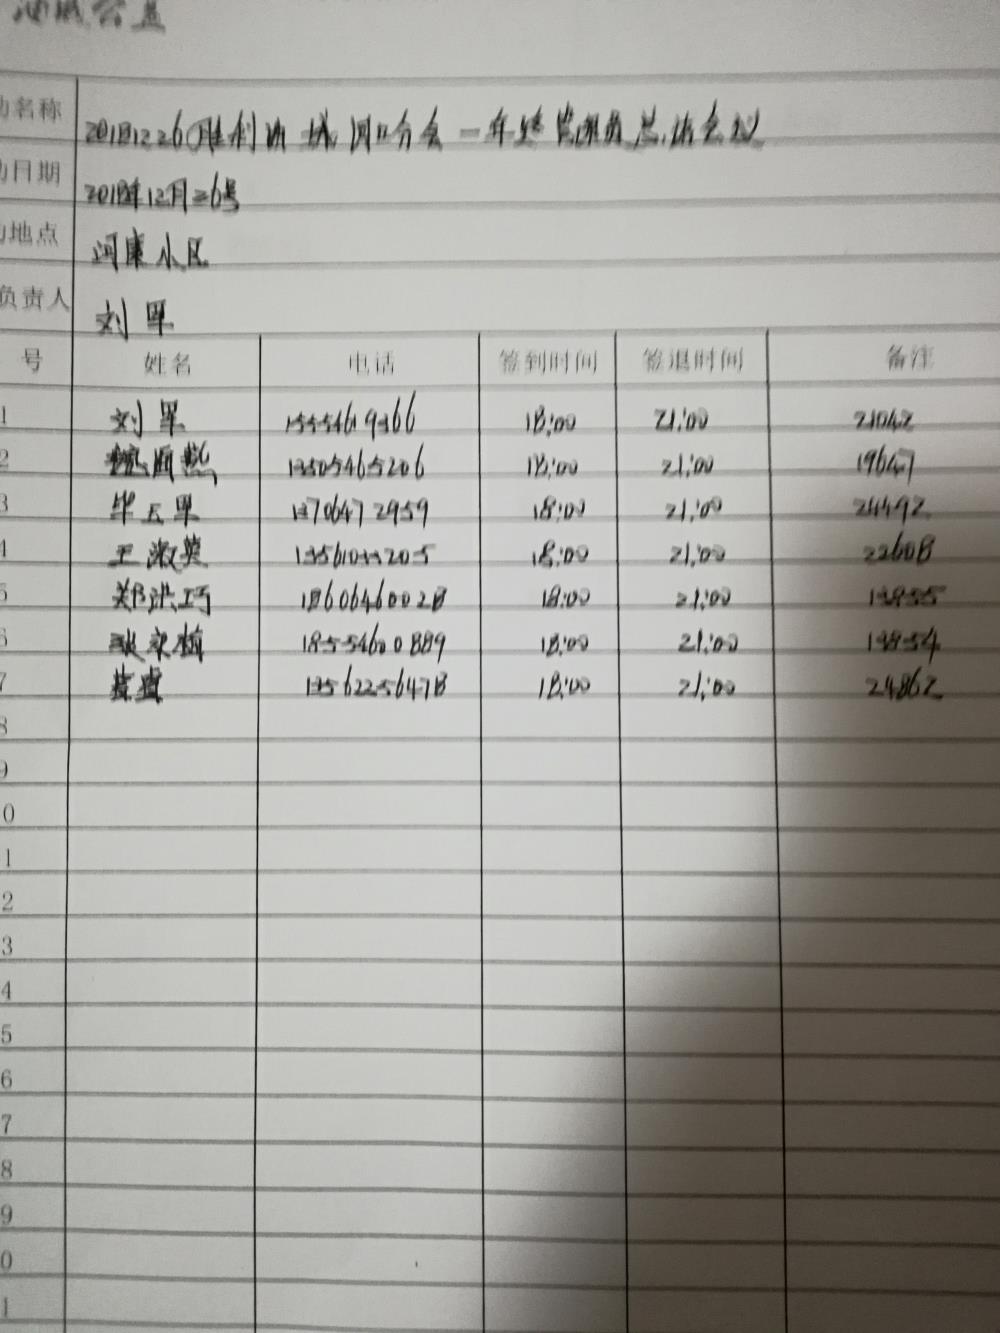 公益
名称 20181226胜利油城河口分会一年
日期 2018年12月26号
地点 河康小区
负责人 刘军
号 姓名 电话 签到时间 签退时间 备注
1 刘军 18:00 21:00 21042
2 13505465206 18:00 21:00 19647
3 毕五军 13706472959 18:00 21:00 24492
4 王淑英 18:00 21:00 22608
5 郑洪巧 18606460028 18:00 21:00 13855
6 18554600889 18:00 21:00 13854
7 13562256478 18:00 21:00 24862
8
9
0
1
2
3
4
5
6
7
8
9
0
1